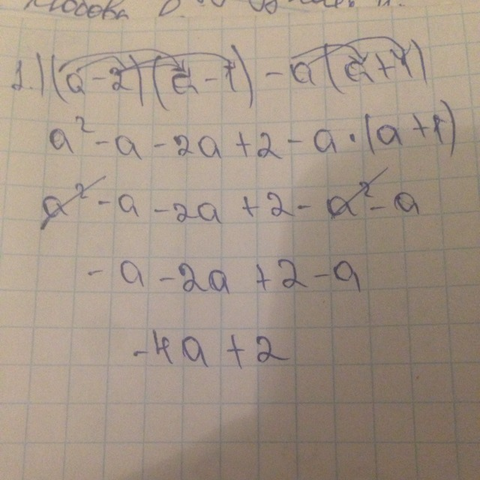 1.) (a-2)(a-1) - a(a+1)
a² - a - 2a + 2 - a·(a+1)
a² - a - 2a + 2 - a² - a
- a - 2a + 2 - a
-4a + 2